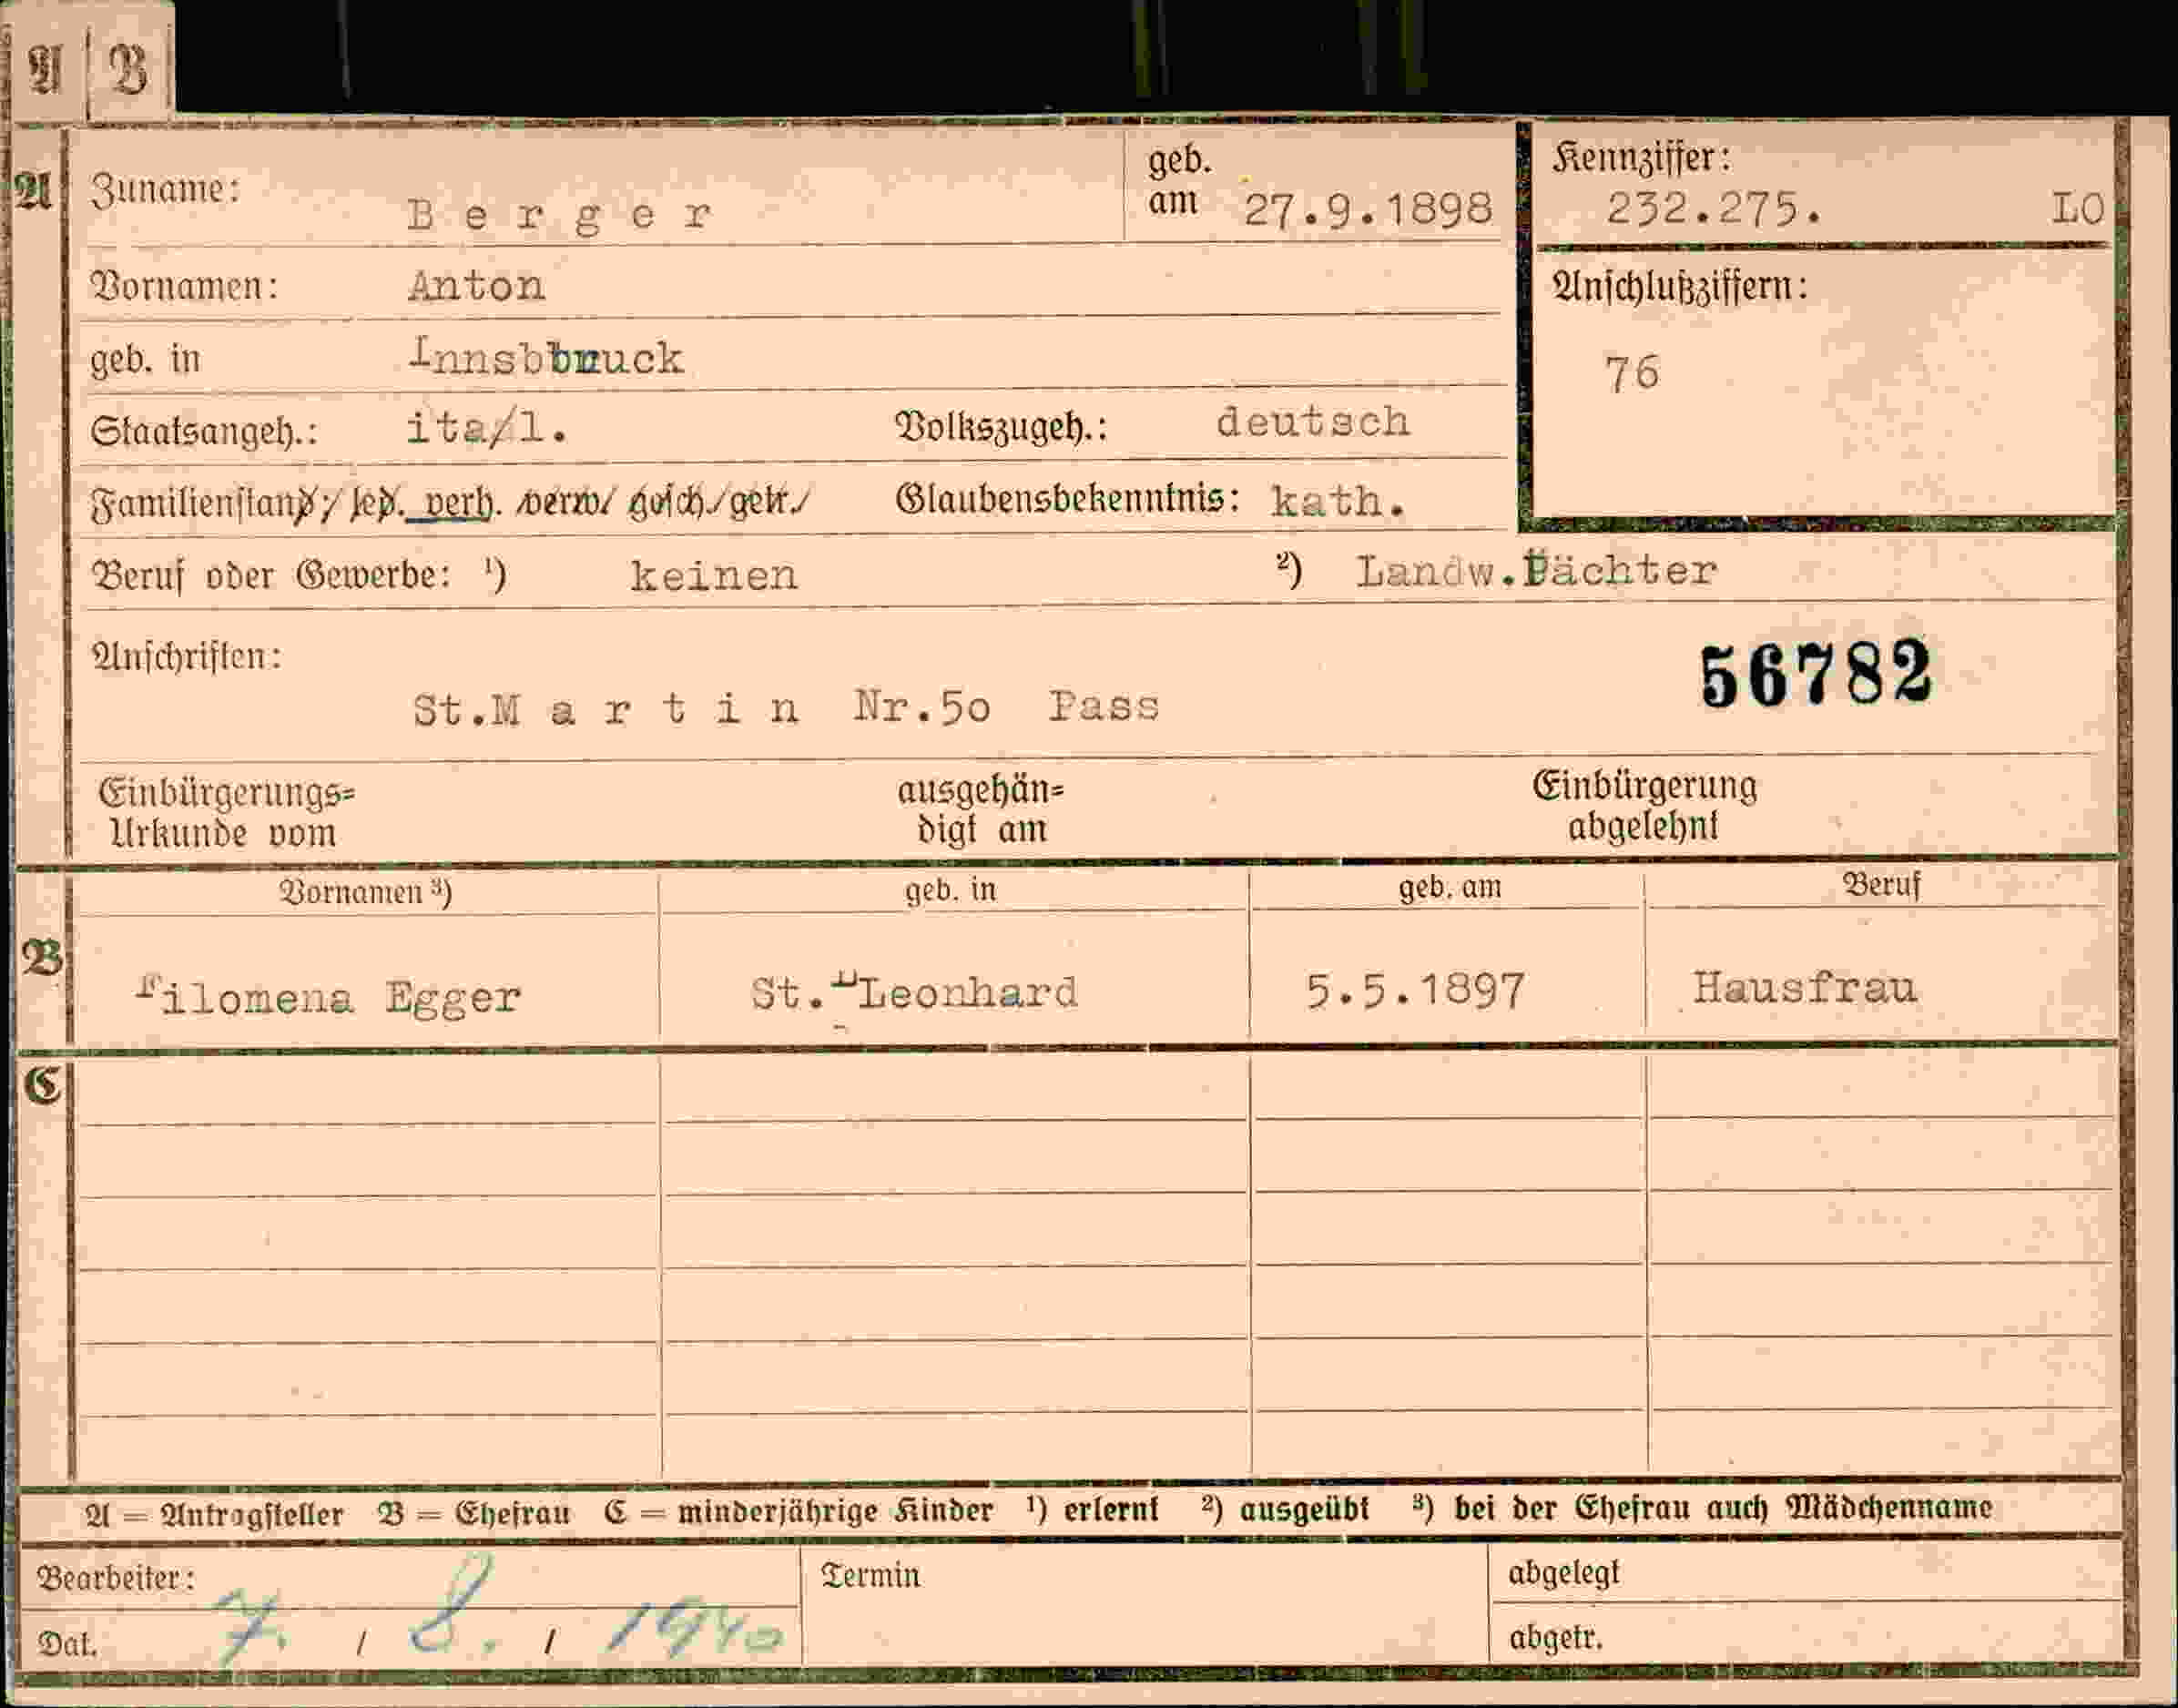 A B
A Zuname: Berger geb. am 27.9.1898 Kennziffer: 232.275. LO
Vornamen: Anton Anschlußziffern:
geb. in Innsbbruck 76
Staatsangeh.: ita/l. Volkszugeh.: deutsch
Familienstand: led. verh. verw. gesch. getr. Glaubensbekenntnis: kath.
Beruf oder Gewerbe: ¹) keinen ²) Landw.Pächter
Anschriften: 56782
St.Martin Nr.5o Pass
Einbürgerungs= ausgehän= Einbürgerung
Urkunde vom digt am abgelehnt
Vornamen ³) geb. in geb. am Beruf
B Filomena Egger St.Leonhard 5.5.1897 Hausfrau
C
A = Antragsteller B = Ehefrau C = minderjährige Kinder ¹) erlernt ²) ausgeübt ³) bei der Ehefrau auch Mädchenname
Bearbeiter: Termin abgelegt
Dat. 7. / 8. / 1940 abgetr.